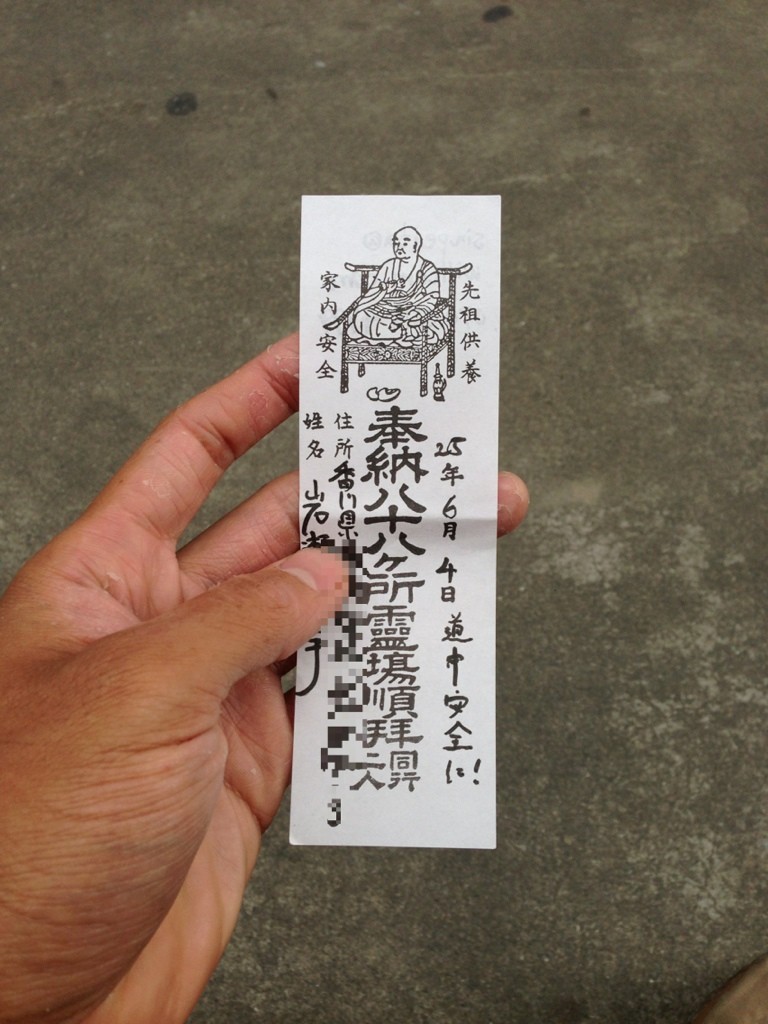 先祖供養
家内安全
25年6月4日 道中安全に!
奉納八十八ケ所靈場順拜同行二人
住所 香川県
姓名